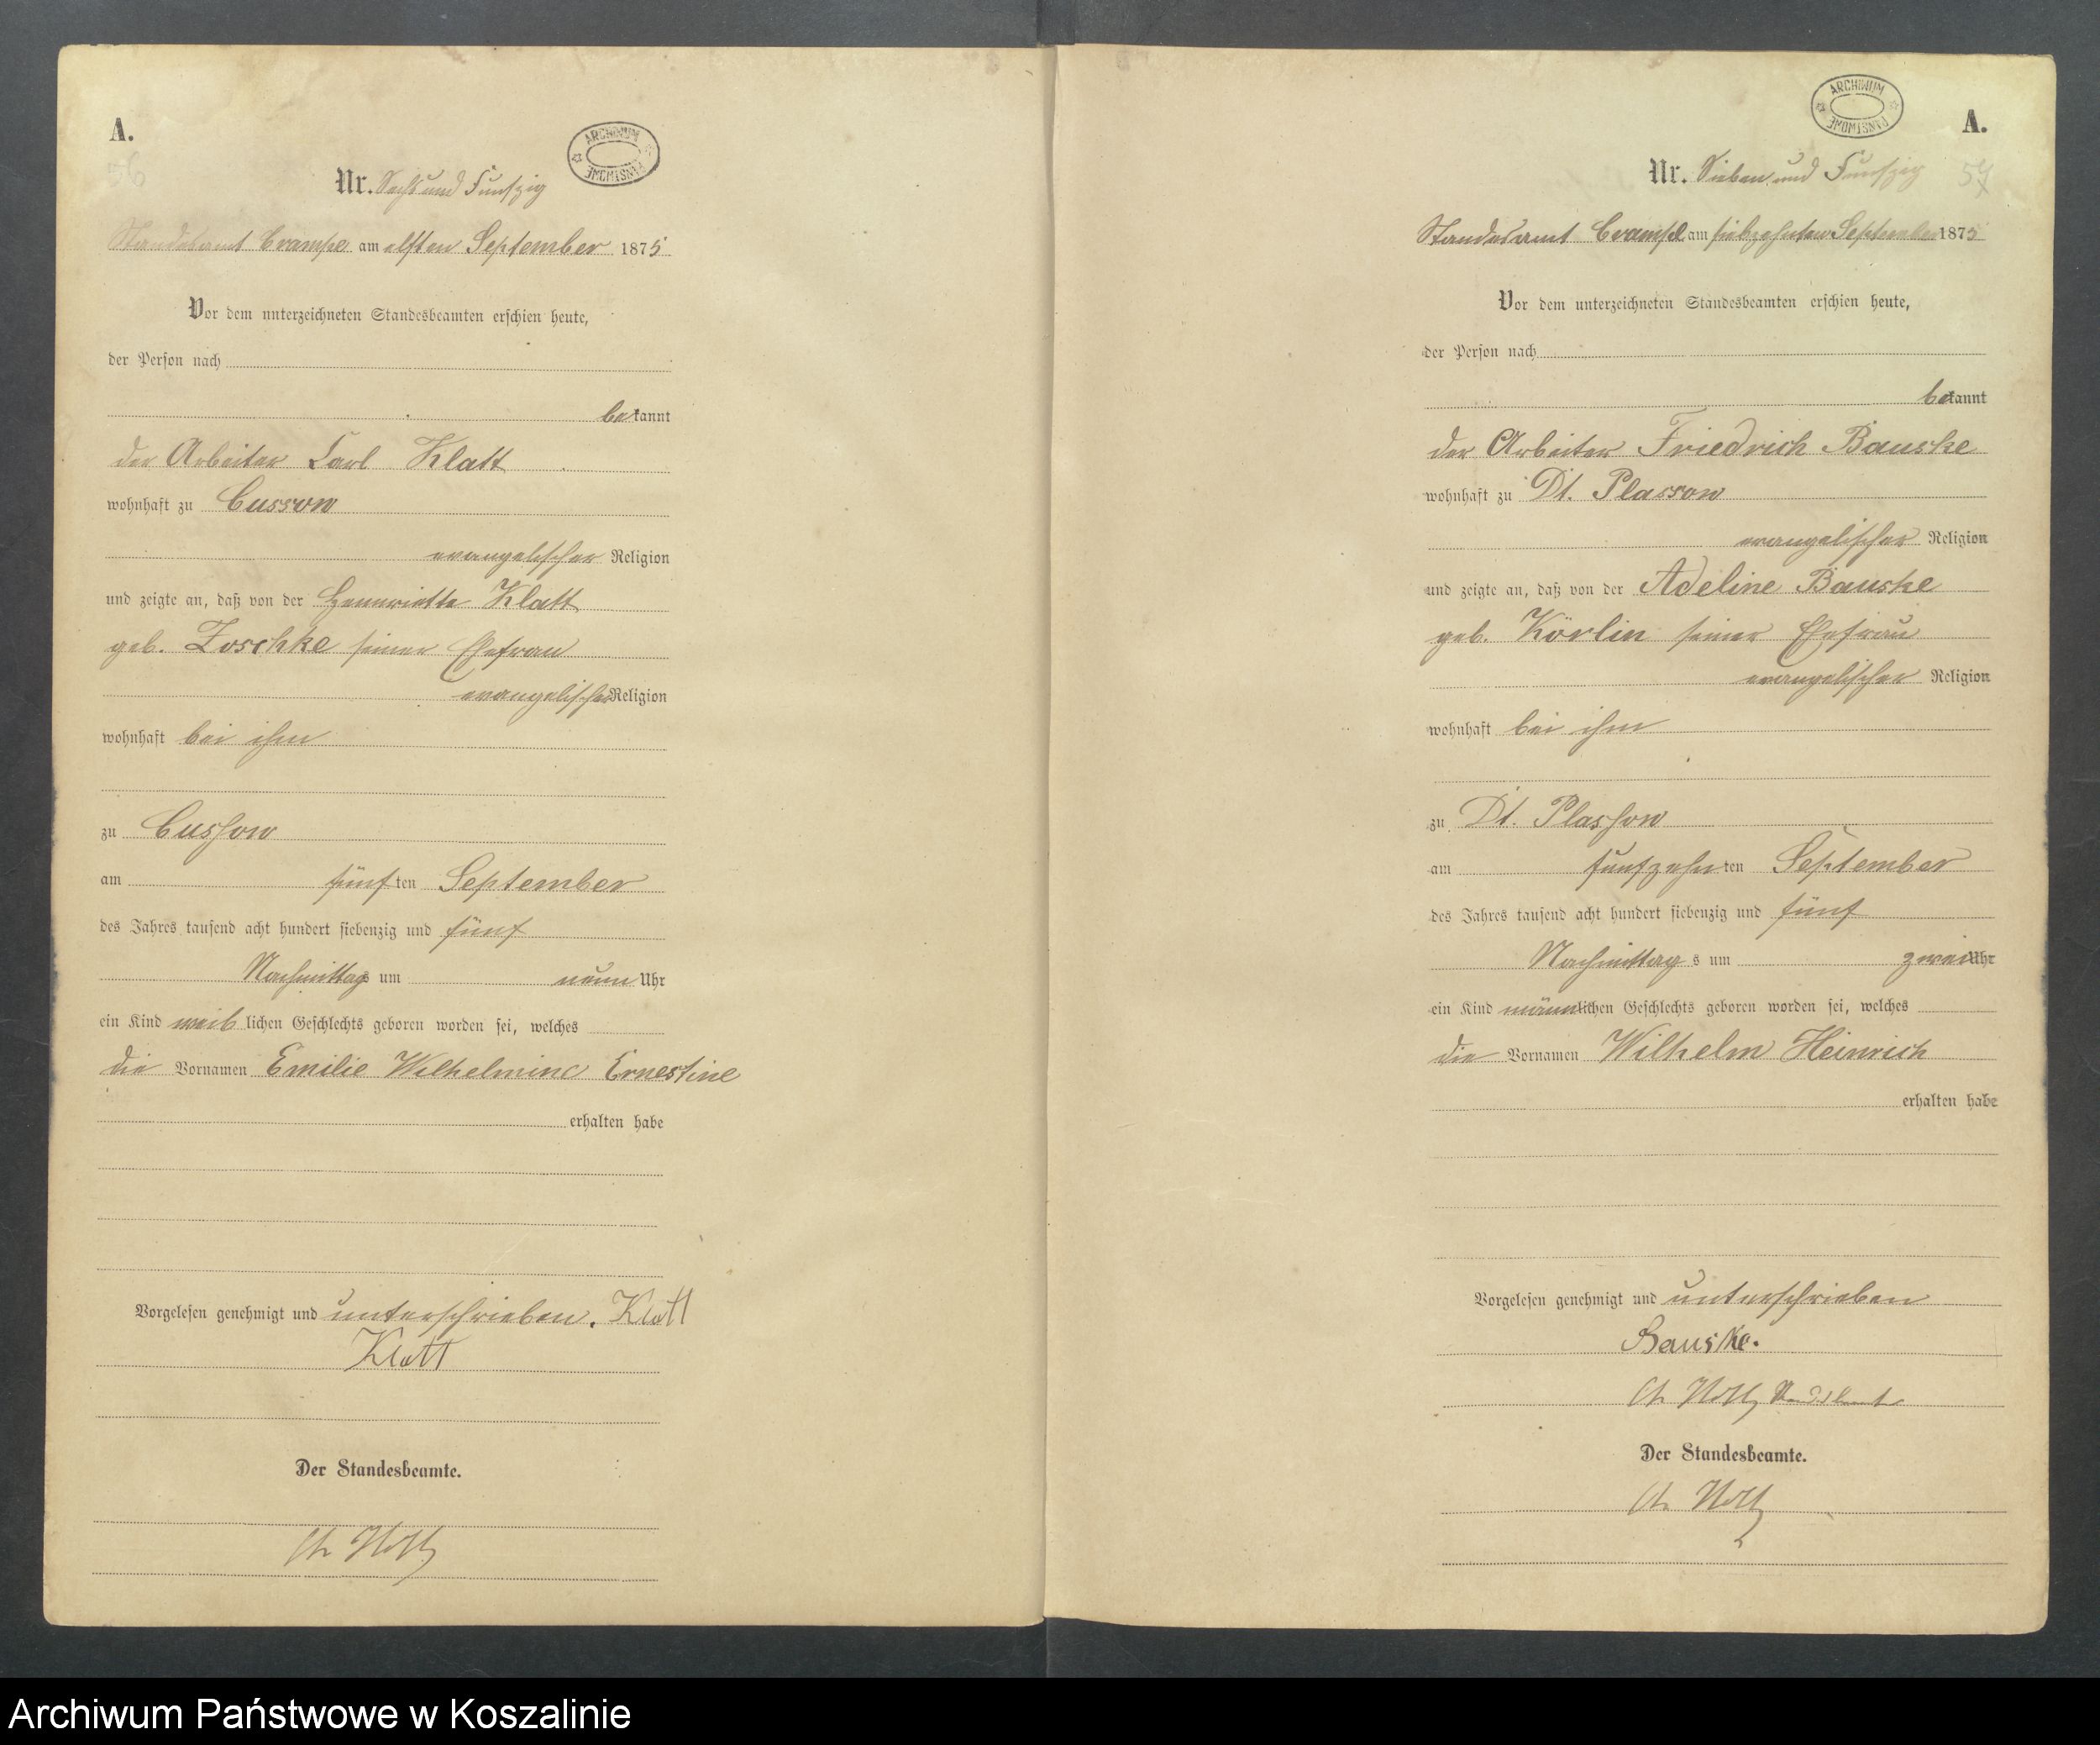 A.
56
ARCHIWUM PAŃSTWOWE
Nr. Sechs und Funfzig
Standesamt Crampe am elften September 1875
Vor dem unterzeichneten Standesbeamten erschien heute,
der Person nach
bekannt
der Arbeiter Carl Klatt
wohnhaft zu Cussow
evangelischer Religion
und zeigte an, daß von der Hennriette Klatt
geb. Zoschke seiner Ehefrau
evangelischer Religion
wohnhaft bei ihm
zu Cussow
am fünften September
des Jahres tausend acht hundert siebenzig und fünf
Nachmittags um neun Uhr
ein Kind weiblichen Geschlechts geboren worden sei, welches
die Vornamen Emilie Wilhelmine Ernestine
erhalten habe
Vorgelesen genehmigt und unterschrieben. Klatt
Klatt
Der Standesbeamte.
ARCHIWUM PAŃSTWOWE
A.
57
Nr. Sieben und Funfzig
Standesamt Crampe am siebzehnten September 1875
Vor dem unterzeichneten Standesbeamten erschien heute,
der Person nach
bekannt
der Arbeiter Friedrich Bauske
wohnhaft zu Dt. Plassow
evangelischer Religion
und zeigte an, daß von der Adeline Bauske
geb. Körlin seiner Ehefrau
evangelischer Religion
wohnhaft bei ihm
zu Dt. Plassow
am funfzehnten September
des Jahres tausend acht hundert siebenzig und fünf
Nachmittags um zwei Uhr
ein Kind männlichen Geschlechts geboren worden sei, welches
die Vornamen Wilhelm Heinrich
erhalten habe
Vorgelesen genehmigt und unterschrieben
Bauske.
Der Standesbeamte.
Archiwum Państwowe w Koszalinie